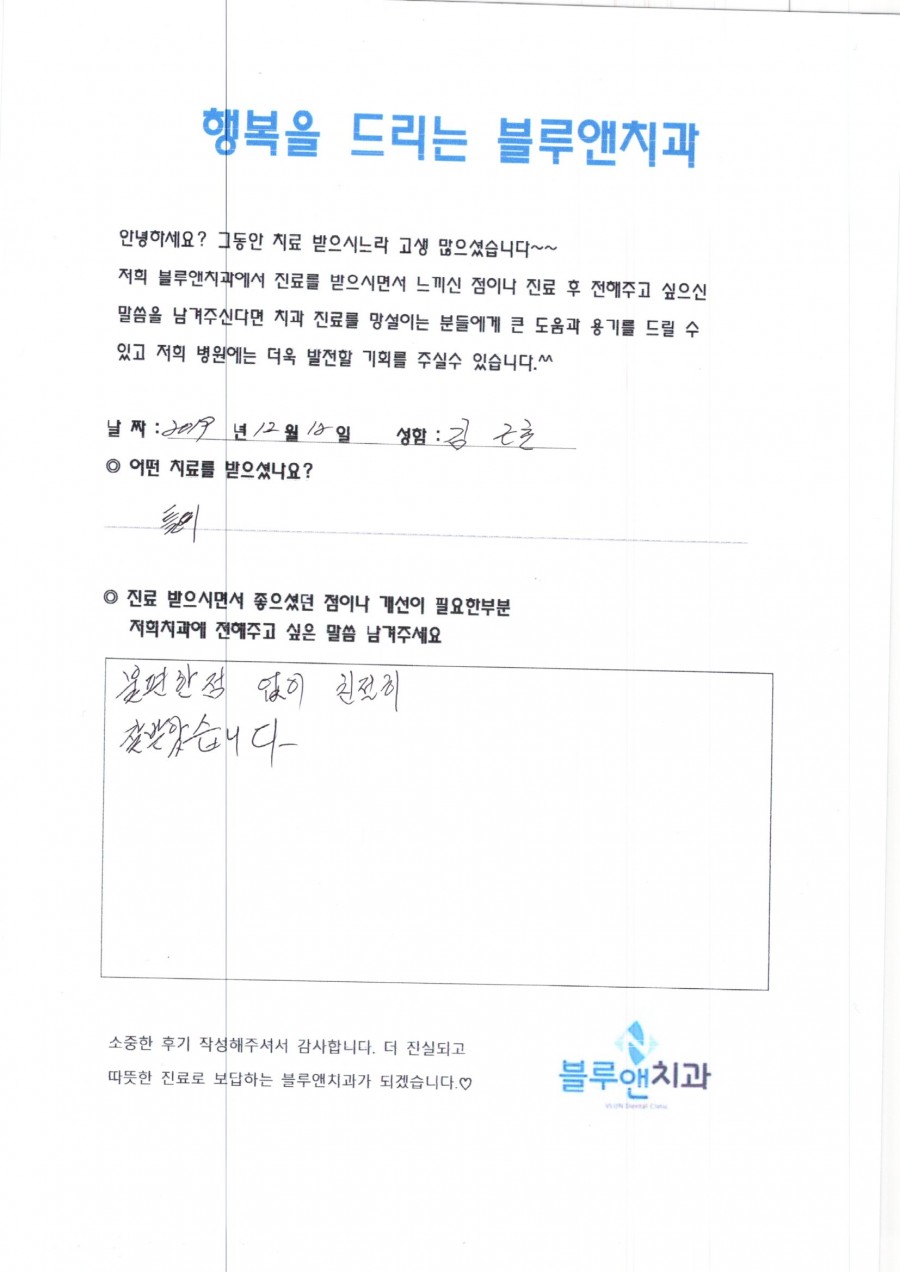 행복을 드리는 블루앤치과
안녕하세요? 그동안 치료 받으시느라 고생 많으셨습니다~~
저희 블루앤치과에서 진료를 받으시면서 느끼신 점이나 진료 후 전해주고 싶으신
말씀을 남겨주신다면 치과 진료를 망설이는 분들에게 큰 도움과 용기를 드릴 수
있고 저희 병원에는 더욱 발전할 기회를 주실수 있습니다.^^
날 짜 : 2019 년 12 월 12 일 성함 : 김
◎ 어떤 치료를 받으셨나요?
틀니
◎ 진료 받으시면서 좋으셨던 점이나 개선이 필요한부분
저희치과에 전해주고 싶은 말씀 남겨주세요
불편한점 없이 친절히
잘받았습니다
소중한 후기 작성해주셔서 감사합니다. 더 진실되고
따뜻한 진료로 보답하는 블루앤치과가 되겠습니다.♡
블루앤치과
Dental Clinic